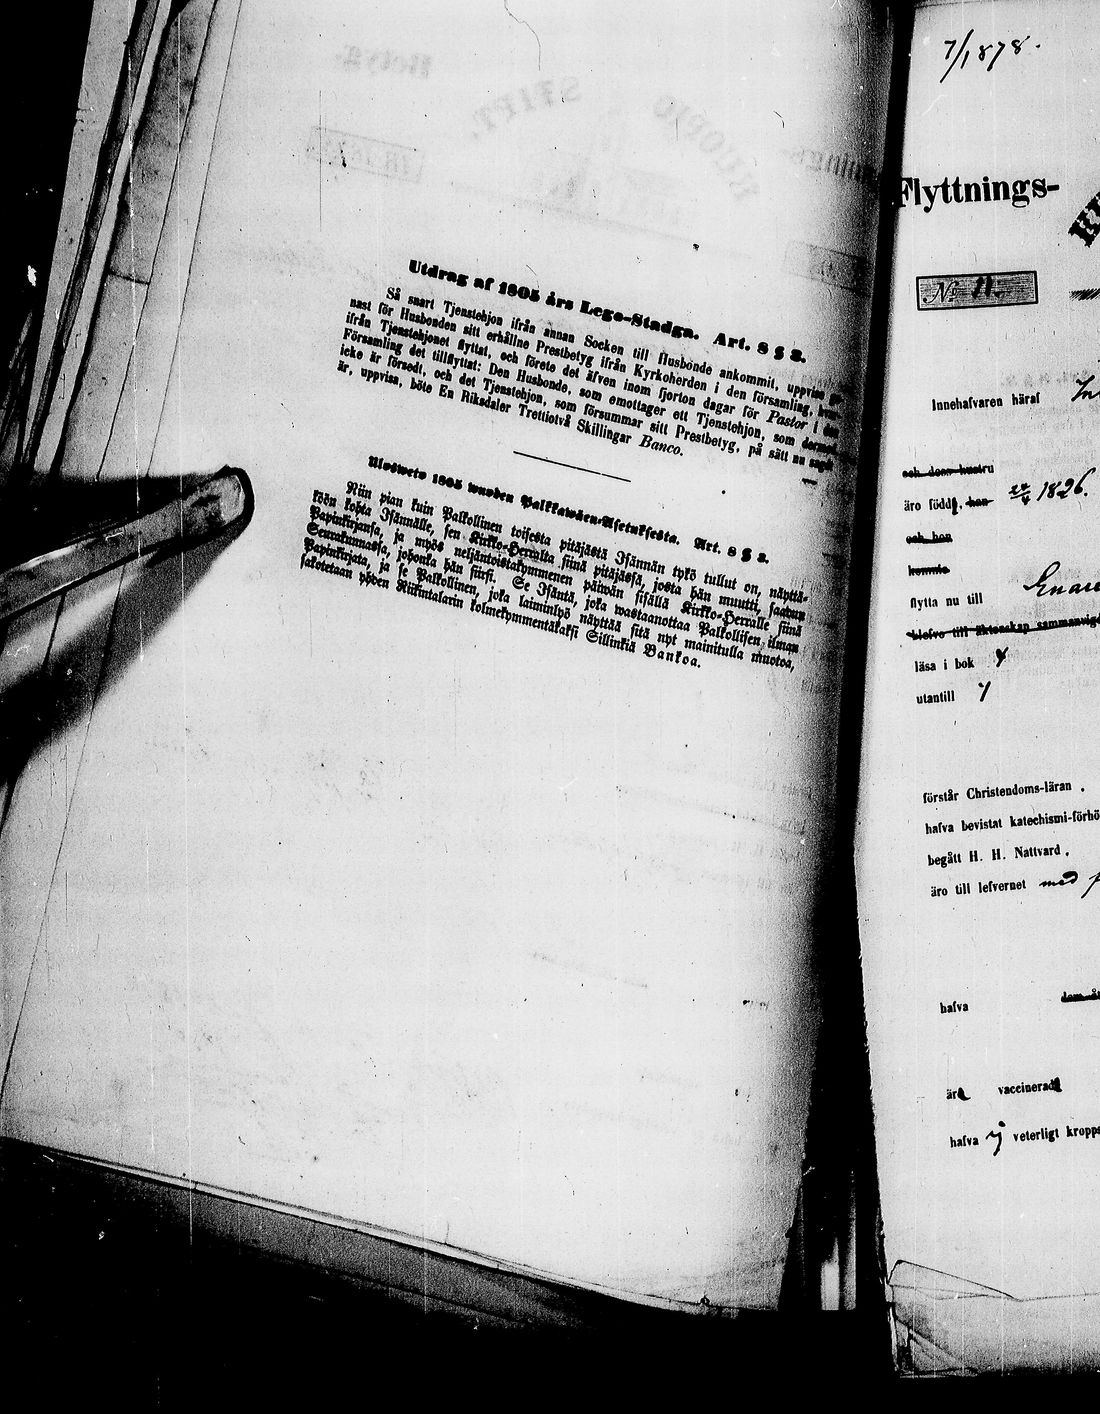 Utdrag af 1805 års Lego-Stadga. Art. 8 § 3.
Så snart Tjenstehjon ifrån annan Socken till Husbonde ankommit, uppvise
nast för Husbonden sitt erhållne Prestbetyg ifrån Kyrkoherden i den församling,
ifrån Tjenstehjonet flyttat, och förete det äfven inom fjorton dagar för Pastor i
Församling det tillflyttat: Den Husbonde, som emottager ett Tjenstehjon, som dermed
icke är försedt, och det Tjenstehjon, som försummar sitt Prestbetyg, på sätt nu sagdt
är, uppvisa, böte En Riksdaler Trettiotvå Skillingar Banco.
Ulosweto 1805 wuoden Palkkawäen-Asetuksesta. Art. 8 § 3.
Niin pian kuin Palkollinen toisesta pitäjästä Isännän tykö tullut on, näyttä-
köön kohta Isännälle, sen Kirkko-Herralta siinä pitäjässä, josta hän muutti, saatun
Papinkirjansa, ja myös neljäntoistakymmenen päiwän sisällä Kirkko-Herralle siinä
Seurakunnassa, johonka hän siirsi. Se Isäntä, joka wastaanottaa Palkollisen ilman
Papinkirjata, ja se Palkollinen, joka laiminlyö näyttää sitä nyt mainitulla muotoa,
sakotetaan yhden Riikintalarin kolmekymmentäkaksi Sillinkiä Bankoa.
7/1878.
Flyttnings-
No 11.
Innehafvaren häraf
och dess hustru
äro födda, han 1826.
och hon
komna
flytta nu till Enare
läsa i bok
utantill
förstår Christendoms-läran .
hafva bevistat katechismi-förhö
begått H. H. Nattvard .
äro till lefvernet med
hafva
äro vaccinerade
hafva ej veterligt kropps